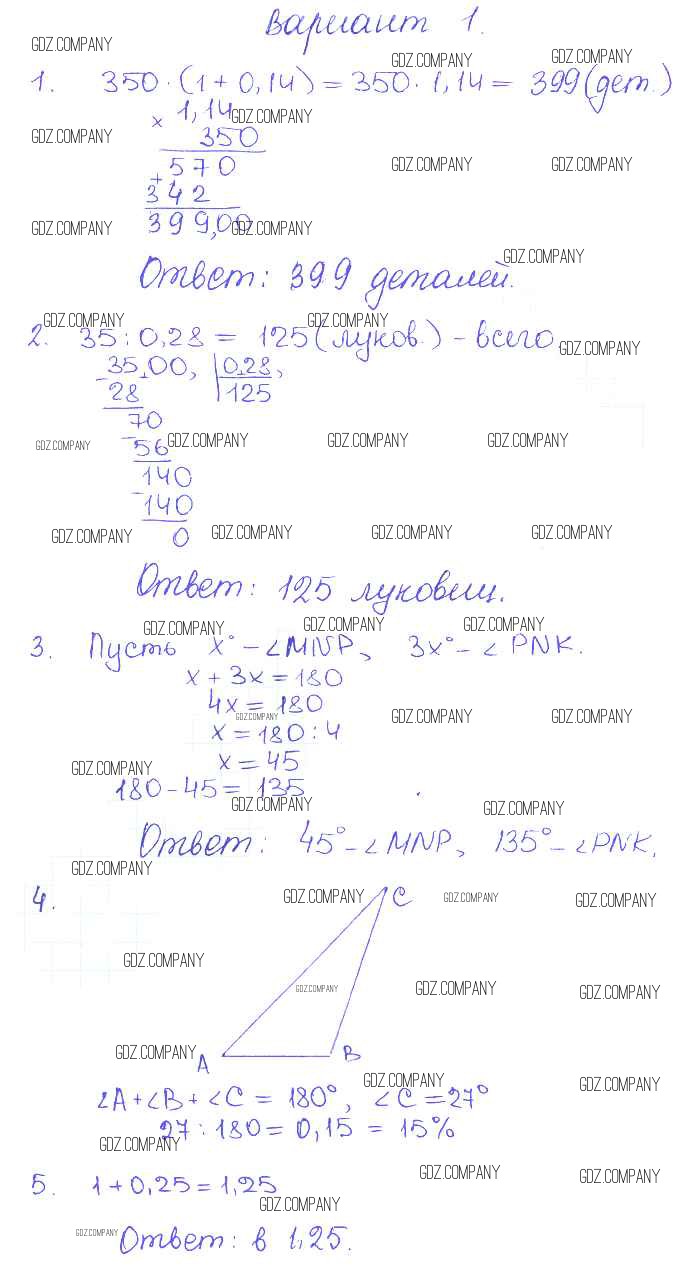 Вариант 1.
GDZ.COMPANY GDZ.COMPANY GDZ.COMPANY
1. 350·(1+0,14)=350·1,14= 399(дет.)
× 1,14 GDZ.COMPANY
GDZ.COMPANY 350
570 GDZ.COMPANY GDZ.COMPANY
+
342
GDZ.COMPANY 399,00 GDZ.COMPANY
GDZ.COMPANY
Ответ: 399 деталей.
GDZ.COMPANY GDZ.COMPANY
2. 35:0,28 = 125(луков.) – всего.
GDZ.COMPANY
35,00, 0,28,
– 28 125
70
GDZ.COMPANY – 56 GDZ.COMPANY GDZ.COMPANY GDZ.COMPANY
140
– 140
GDZ.COMPANY 0 GDZ.COMPANY GDZ.COMPANY GDZ.COMPANY
Ответ: 125 луковиц.
GDZ.COMPANY GDZ.COMPANY GDZ.COMPANY
3. Пусть x° – ∠MNP, 3x° – ∠PNK.
x + 3x = 180
4x = 180
GDZ.COMPANY GDZ.COMPANY GDZ.COMPANY
x = 180 : 4
x = 45
GDZ.COMPANY
180 – 45 = 135
GDZ.COMPANY GDZ.COMPANY
Ответ: 45° – ∠MNP, 135° – ∠PNK.
GDZ.COMPANY
4. GDZ.COMPANY C GDZ.COMPANY GDZ.COMPANY
GDZ.COMPANY
GDZ.COMPANY GDZ.COMPANY GDZ.COMPANY
GDZ.COMPANY A B
GDZ.COMPANY GDZ.COMPANY
∠A+∠B+∠C = 180°, ∠C = 27°
27 : 180 = 0,15 = 15%
GDZ.COMPANY
GDZ.COMPANY GDZ.COMPANY
5. 1+0,25 = 1,25
GDZ.COMPANY
GDZ.COMPANY Ответ: в 1,25.